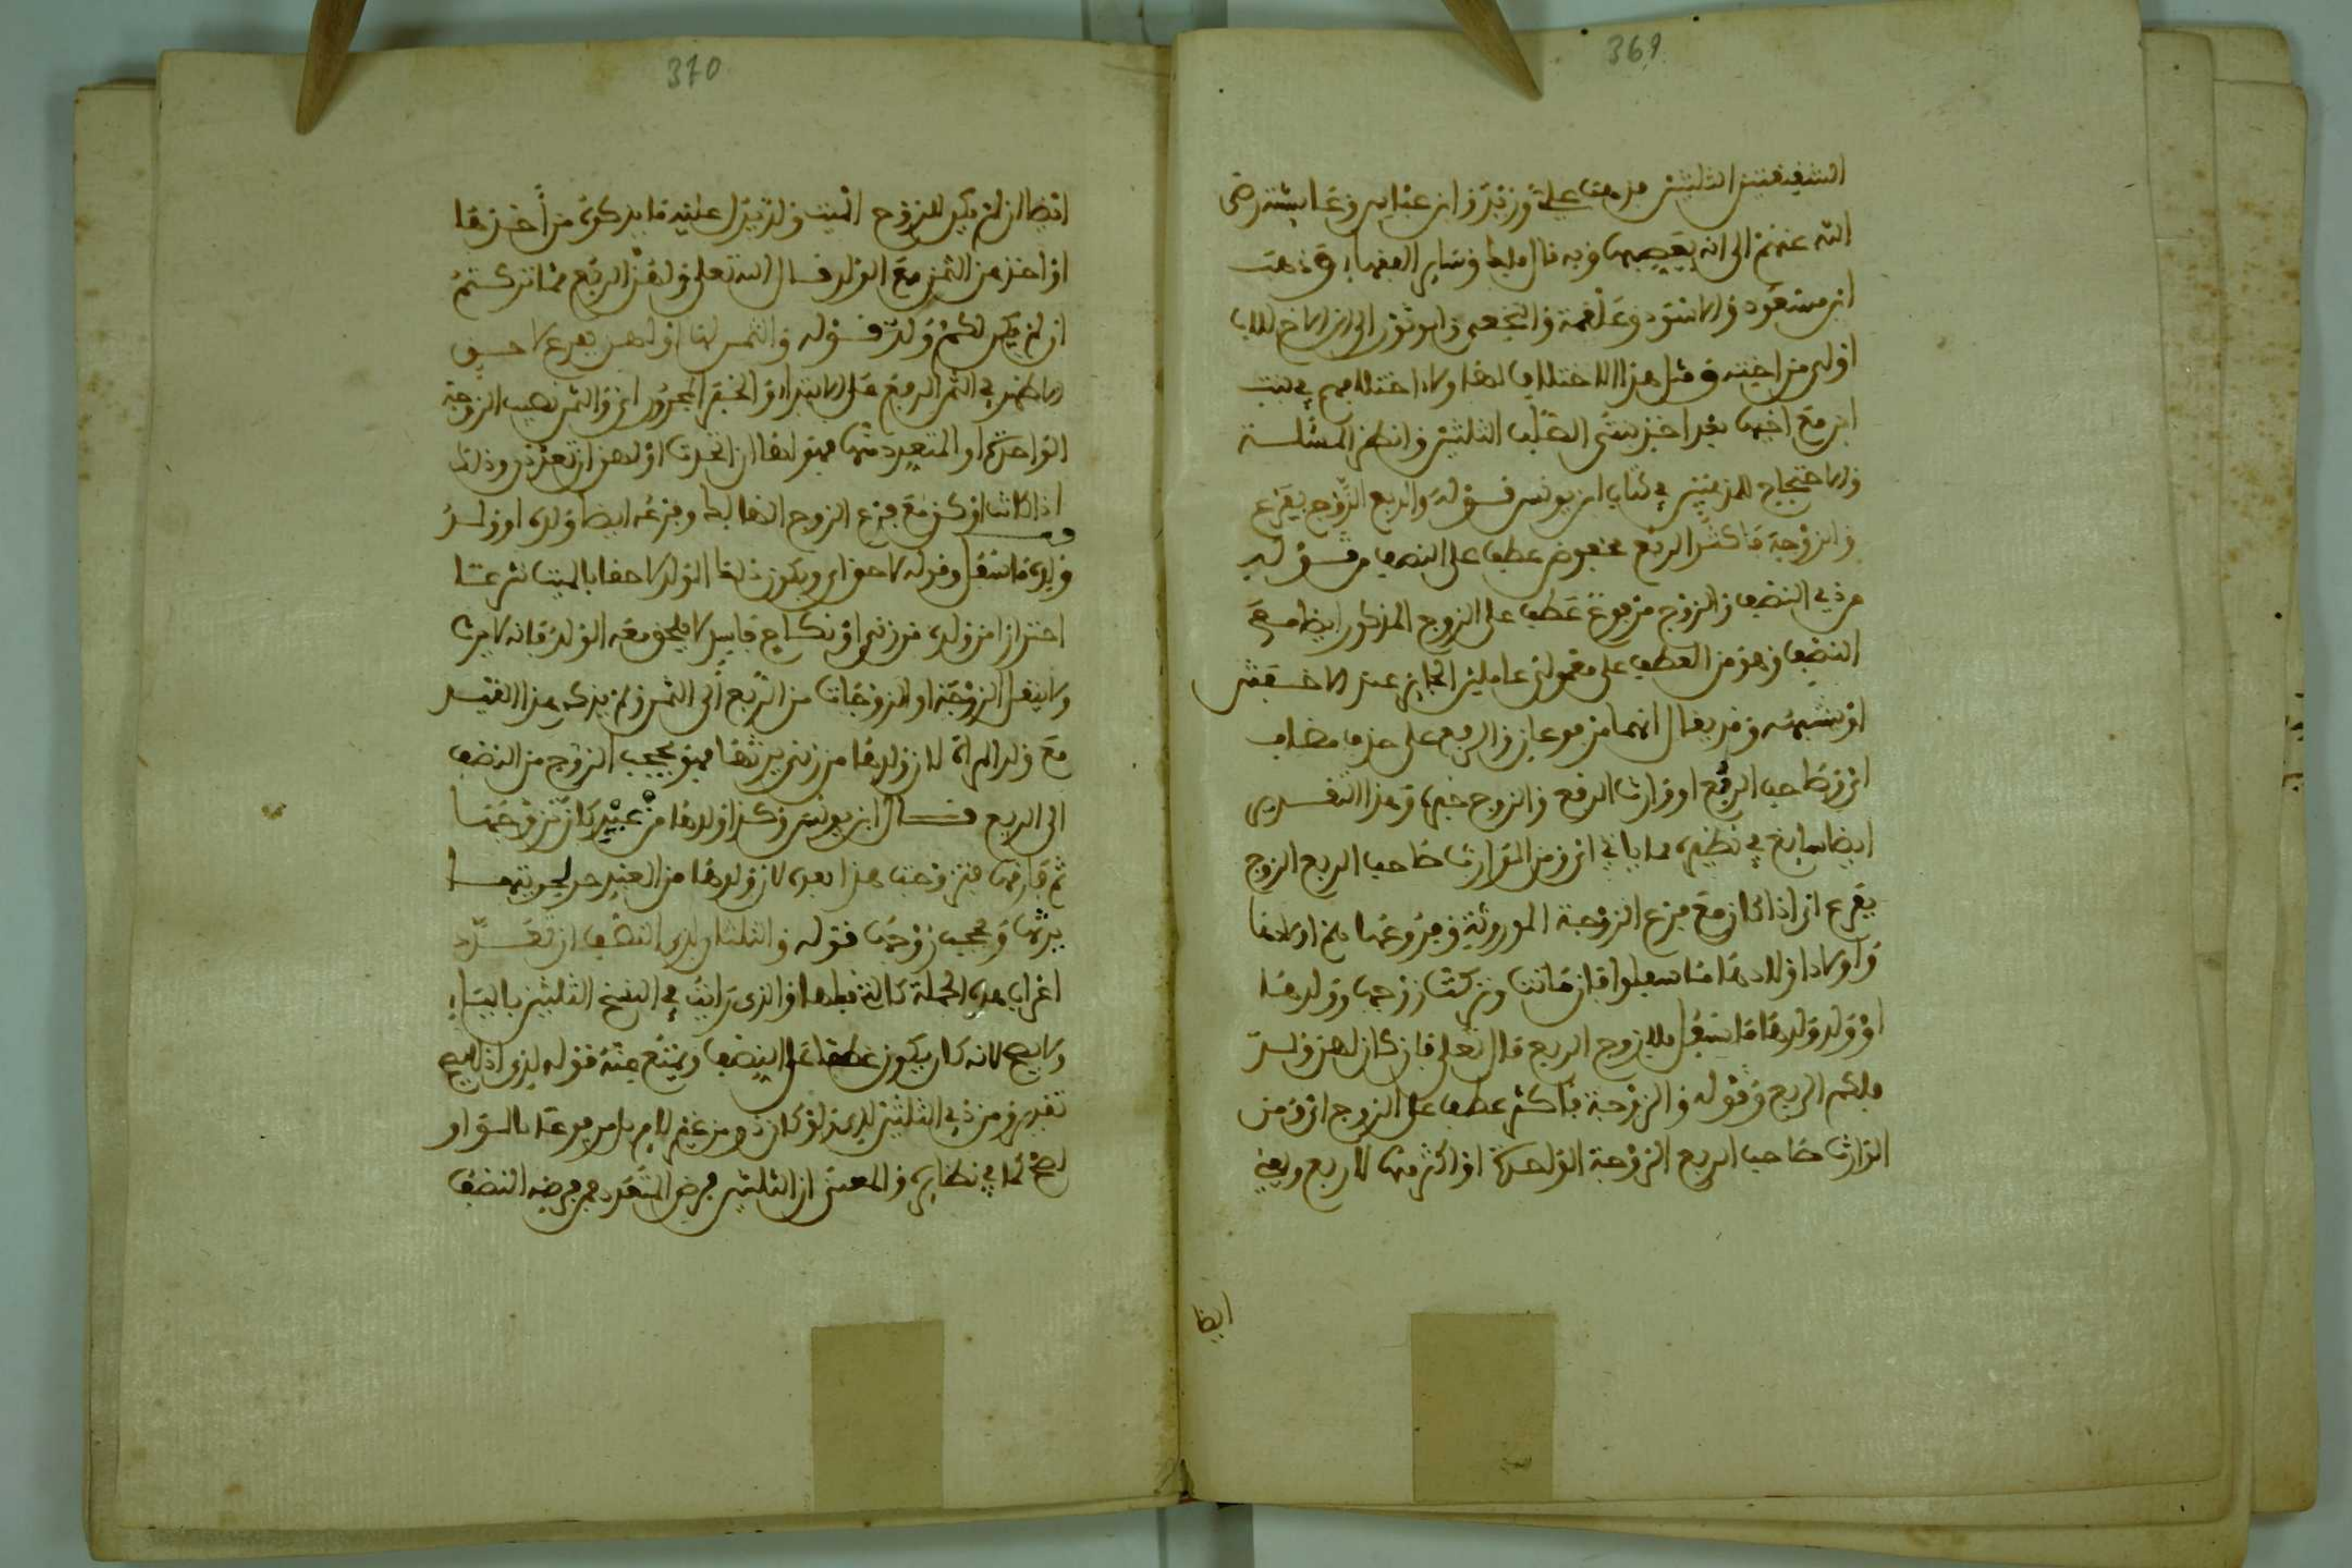 369
الشقيقتين الثلثين فذهب علي وزيد وابن عباس وعايشة رضي
الله عنهم الى انه يعصبها وبه قال ملك وساير الفقهاء وذهب
ابن مسعود والاسود وعلقمة والنخعي وابو ثور الى ان الاخ للاب
اولى من اخته ومثل هذا الاختلاف لها ولا اختلافهم في بنت
ابن مع اخيها بعد اخذ بنتي الصلب الثلثين وانظر المسئلة
والاحتجاج للمذهبين في كتاب ابن يونس قوله والربع الزوج بفرع
والزوجة فاكثر الربع مخفوض عطف على النصف من قوله
من ذي النصف والزوج مرفوع عطف على الزوج المذكور ايضا مع
النصف وهو من العطف على معمولي عاملين الجايز عند الاخفش
او نسبته وقد يقال انهما مرفوعان والربع على حذف مضاف
اي وصاحب الربع او وارث الربع والزوج خبره وهذا التقدير
ايضا سايغ في نظيره مما ياتي اي ومن الوارث صاحب الربع الزوج
بفرع اي اذا كان مع فرع الزوجة الموروثة وفروعها هم اولادها
واولاد اولادها ما سفلوا فان ماتت وتركت زوجها وولدها
او ولد ولدها ما سفل فللزوج الربع قال تعلى فان كان لهن ولد
فلكم الربع وقوله والزوجة فاكثر عطف على الزوج اي ومن
الوارث صاحب الربع الزوجة الواحدة او اكثر منها لاربع ويعني
ايضا
370
ايضا ان لم يكن للزوج الميت ولد يدل عليه ما يذكره من اخذها
او اخذهن الثمن مع الولد قال الله تعلى ولهن الربع مما تركتم
ان لم يكن لكم ولد قوله والثمن لها او لهن بفرع لاحق
الاظهر في الثمن الرفع على الابتداء والخبر المجرور اي والثمن نصيب الزوجة
الواحدة او المتعددة منها فهو لها ان اتحدت او لهن ان تعددن وذلك
اذا كانت او كن مع فرع الزوج الهالك وفرعه ايضا ولده او ولد
ولده ما سفل وقوله لاحق اي ويكون ذلك الولد لاحقا بالميت شرعا
احترازا من ولده من زنى او نكاح فاسد لا يلحق معه الولد فانه لا يرث
ولا ينقل الزوجة او الزوجات من الربع الى الثمن ولم يذكر هذا القيد
مع ولد المراة لان ولدها من زنى يرثها فهو يحجب الزوج من النصف
الى الربع قال ابن يونس وكذا ولدها من عبد كان تزوجها
ثم فارقها فتزوجت هذا بعده لان ولدها من العبد حر لحريتها
يرثها ويحجب زوجها قوله والثلثان لذي النصف ان تعدد
اعراب هذه الجملة كالتي قبلها والذي رايت في النسخ الثلثين بالياء
ولا يصح لانه كان يكون عطفا على النصف ويمنع منه قوله لذي اذ لا يصح
تقدير ومن ذي الثلثين لذي ولو كان ذو من غير لام بل مرفوعا بالواو
لصح كما في نظايره والمعنى ان الثلثين فرض المتعدد ممن فرضه النصف